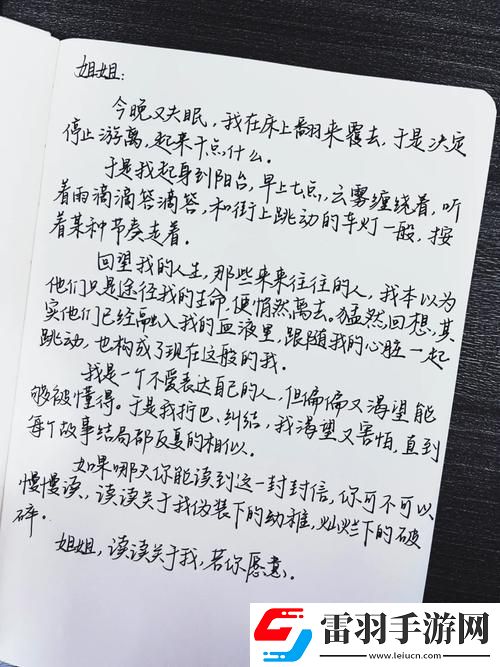 姐姐：
今晚又失眠，我在床上翻来覆去，于是决定
停止游离，起来干点什么。
于是我起身到阳台，早上七点，云雾缠绕着，听
着雨滴滴答滴答，和街上跳动的车灯一般，按
着某种节奏走着。
回望我的人生，那些来来往往的人，我本以为
他们只是途径我的生命，便悄然离去。猛然回想，其
实他们已经融入我的血液里，跟随我的心脏一起
跳动，也构成了现在这般的我。
我是一个不爱表达自己的人，但偏偏又渴望能
够被懂得。于是我拧巴、纠结，我渴望又害怕，直到
每个故事结局都反复的相似。
如果哪天你能读到这一封封信，你可不可以
慢慢读，读读关于我伪装下的幼稚，灿烂下的破
碎。
姐姐，读读关于我，若你愿意。
雷羽手游网
www.leiyu.com